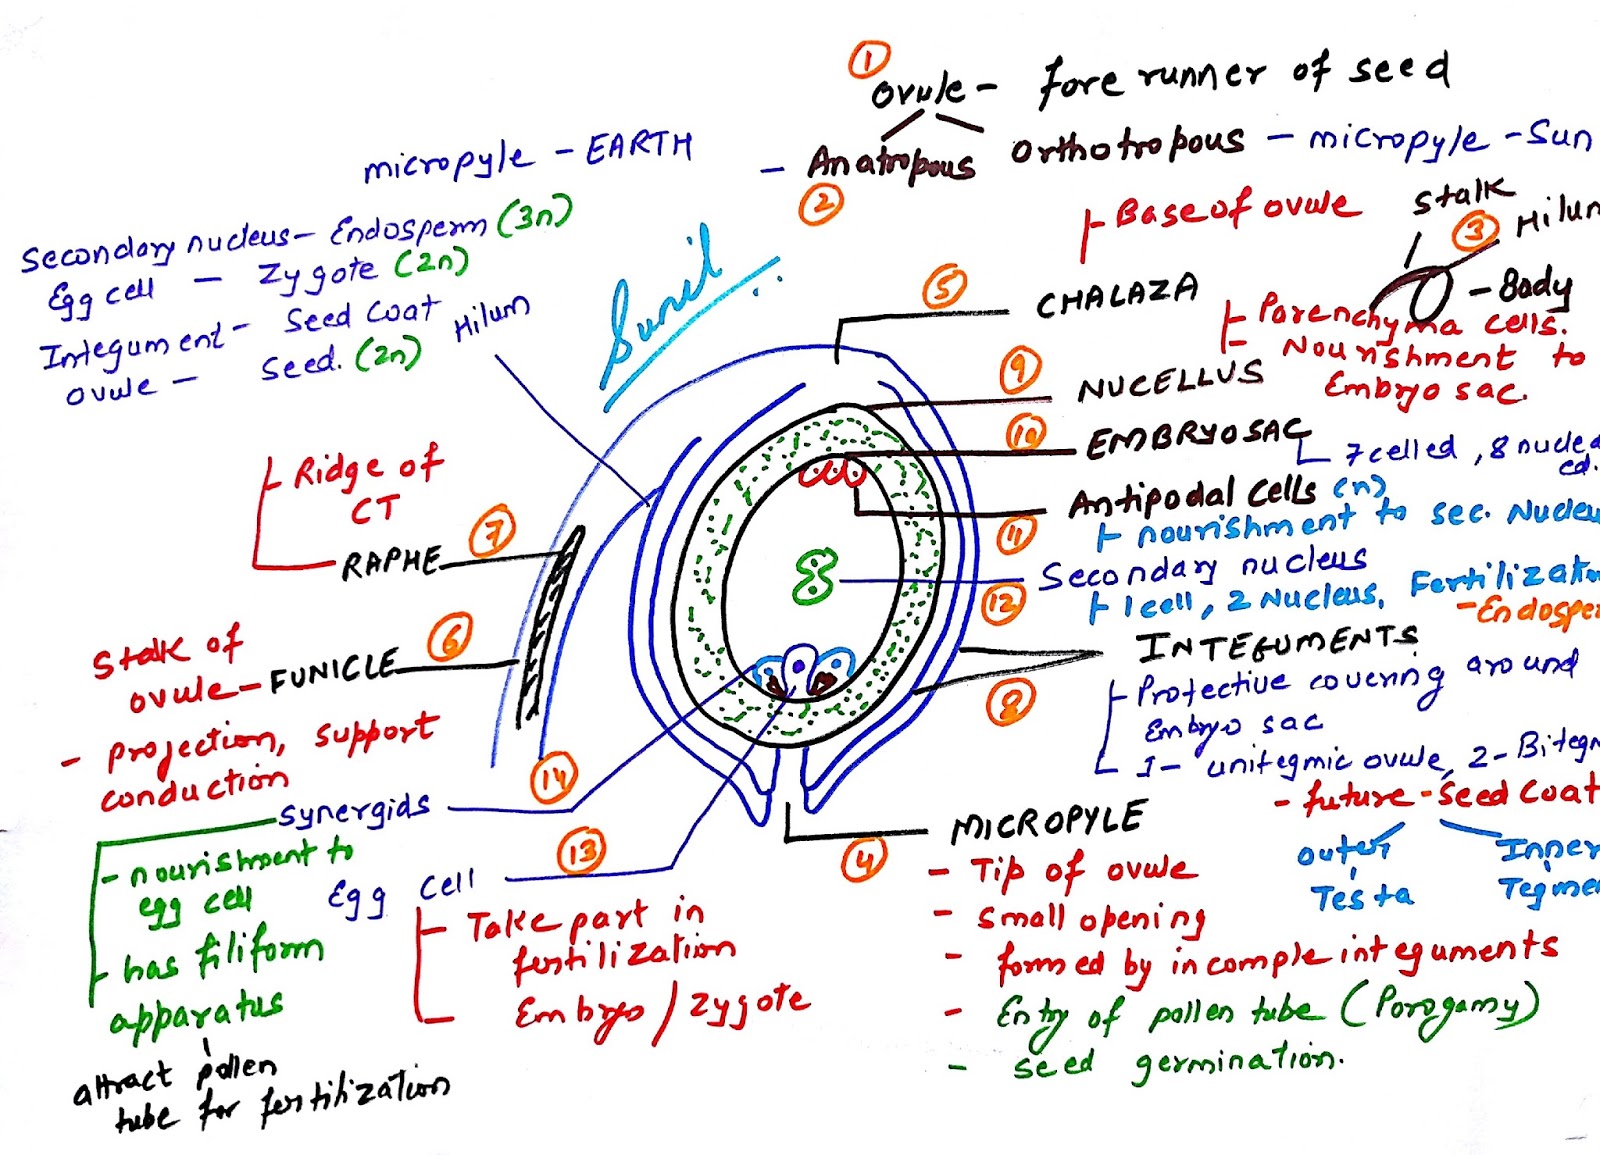 1
Ovule - fore runner of seed
micropyle - EARTH - Anatropous Orthotropous - micropyle - Sun
2
Base of ovule
Stalk
3
Hilum
Body
Secondary nucleus - Endosperm (3n)
Egg cell - Zygote (2n)
Integument - Seed Coat
ovule - Seed. (2n)
Hilum
Sunil
5
CHALAZA
Parenchyma cells.
Nourishment to
Embryo sac.
9
NUCELLUS
10
EMBRYOSAC
7 celled, 8 nucleated.
Antipodal Cells (n)
11
nourishment to sec.
Secondary nucleus
12
1 cell, 2 Nucleus,
Ridge of
CT
7
RAPHE
Stalk of
ovule - FUNICLE
6
- projection, support
conduction
INTEGUMENTS
8
Protective covering around
Embryo sac
1- unitegmic ovule, 2-
- future - Seed Coat
outer Inner
Testa
14
Synergids
- nourishment to
egg cell
- has filiform
apparatus
attract pollen
tube for fertilization
13
Egg Cell
- Take part in
fertilization
Embryo / Zygote
MICROPYLE
4
- Tip of ovule
- small opening
- formed by incomple integuments
- Entry of pollen tube (Porogamy)
- seed germination.